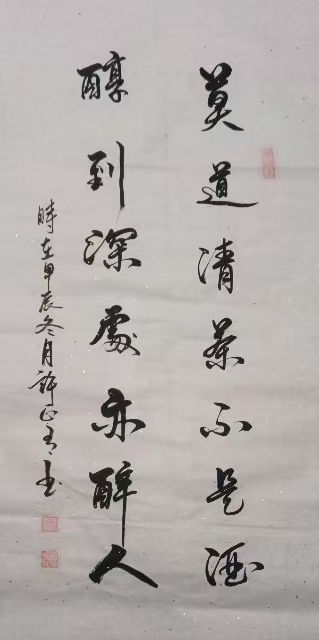 莫道清茶不是酒
醇到深處亦醉人
時在甲辰冬月許正書